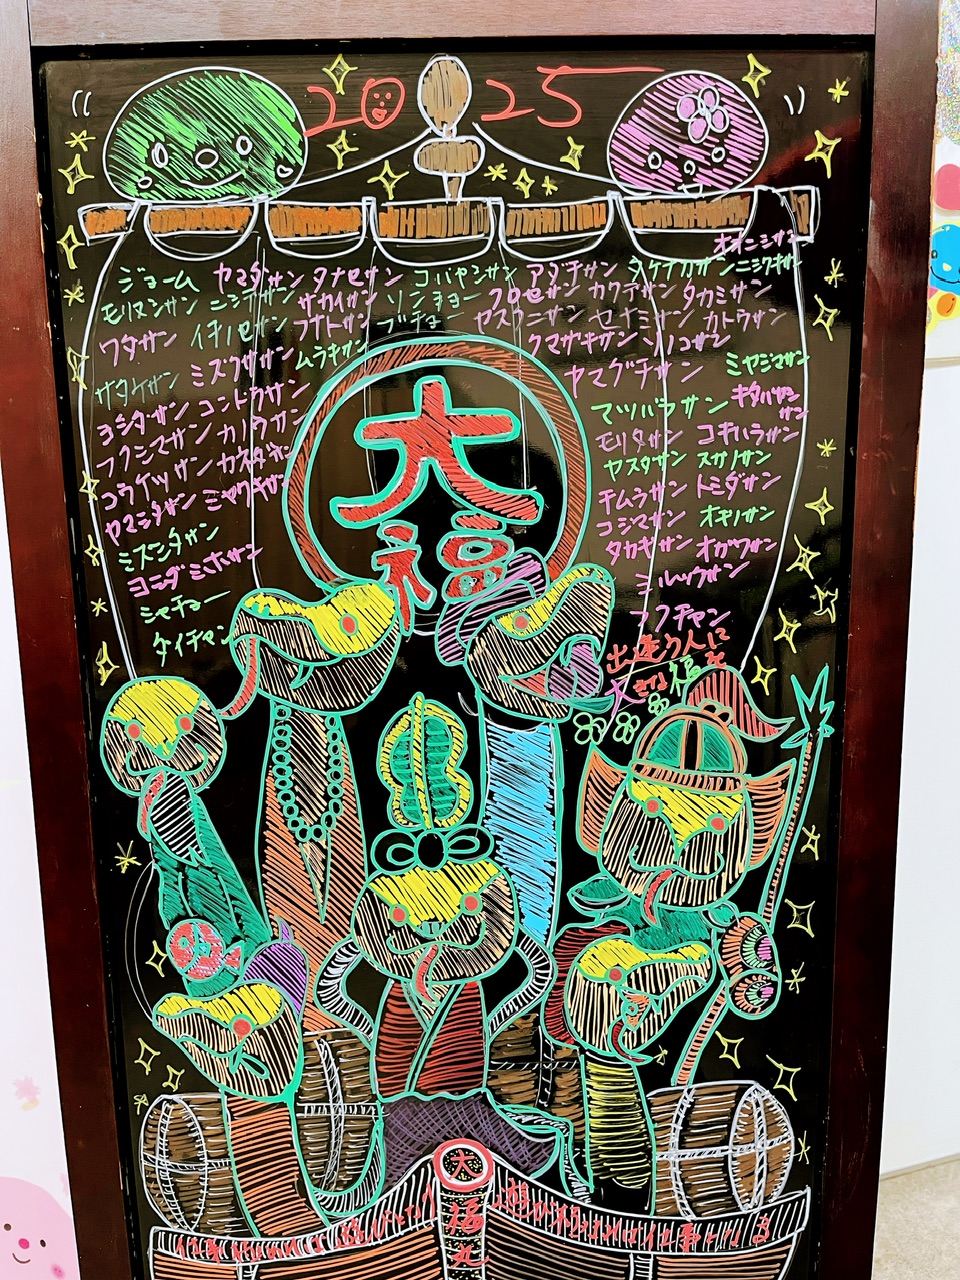 2025
オオニシサン
ジョーム ヤマダサン タナセサン コバヤシサン アダチサン タケナカサン ニシワキサン
モリタンサン ニシデサン サカイサン ソンチョー クロセサン カワデサン タカミサン
ワタサン イチノセサン フナトサン ブチョー ヤスクニサン セナミサン カトウサン
サタケサン ミズウササン ムラキサン クマザキサン ソノコサン
ヤマグチサン ミヤジマサン
ヨシダサン コンドウサン マツバラサン キタハヤシサン
フクシマサン カノウサン モリタサン コキハラサン
コウケツサン カスガサン ヤスダサン スガノサン
ヤマシタサン ミヤワキサン チムラサン トミダサン
ミズシタサン コジマサン オギノサン
ヨニダ ミホサン タカギサン オガワサン
シャチョー ミルソウサン
タイチャン フクチャン
大
福
出逢う人に
大きな福を
大
福
丸